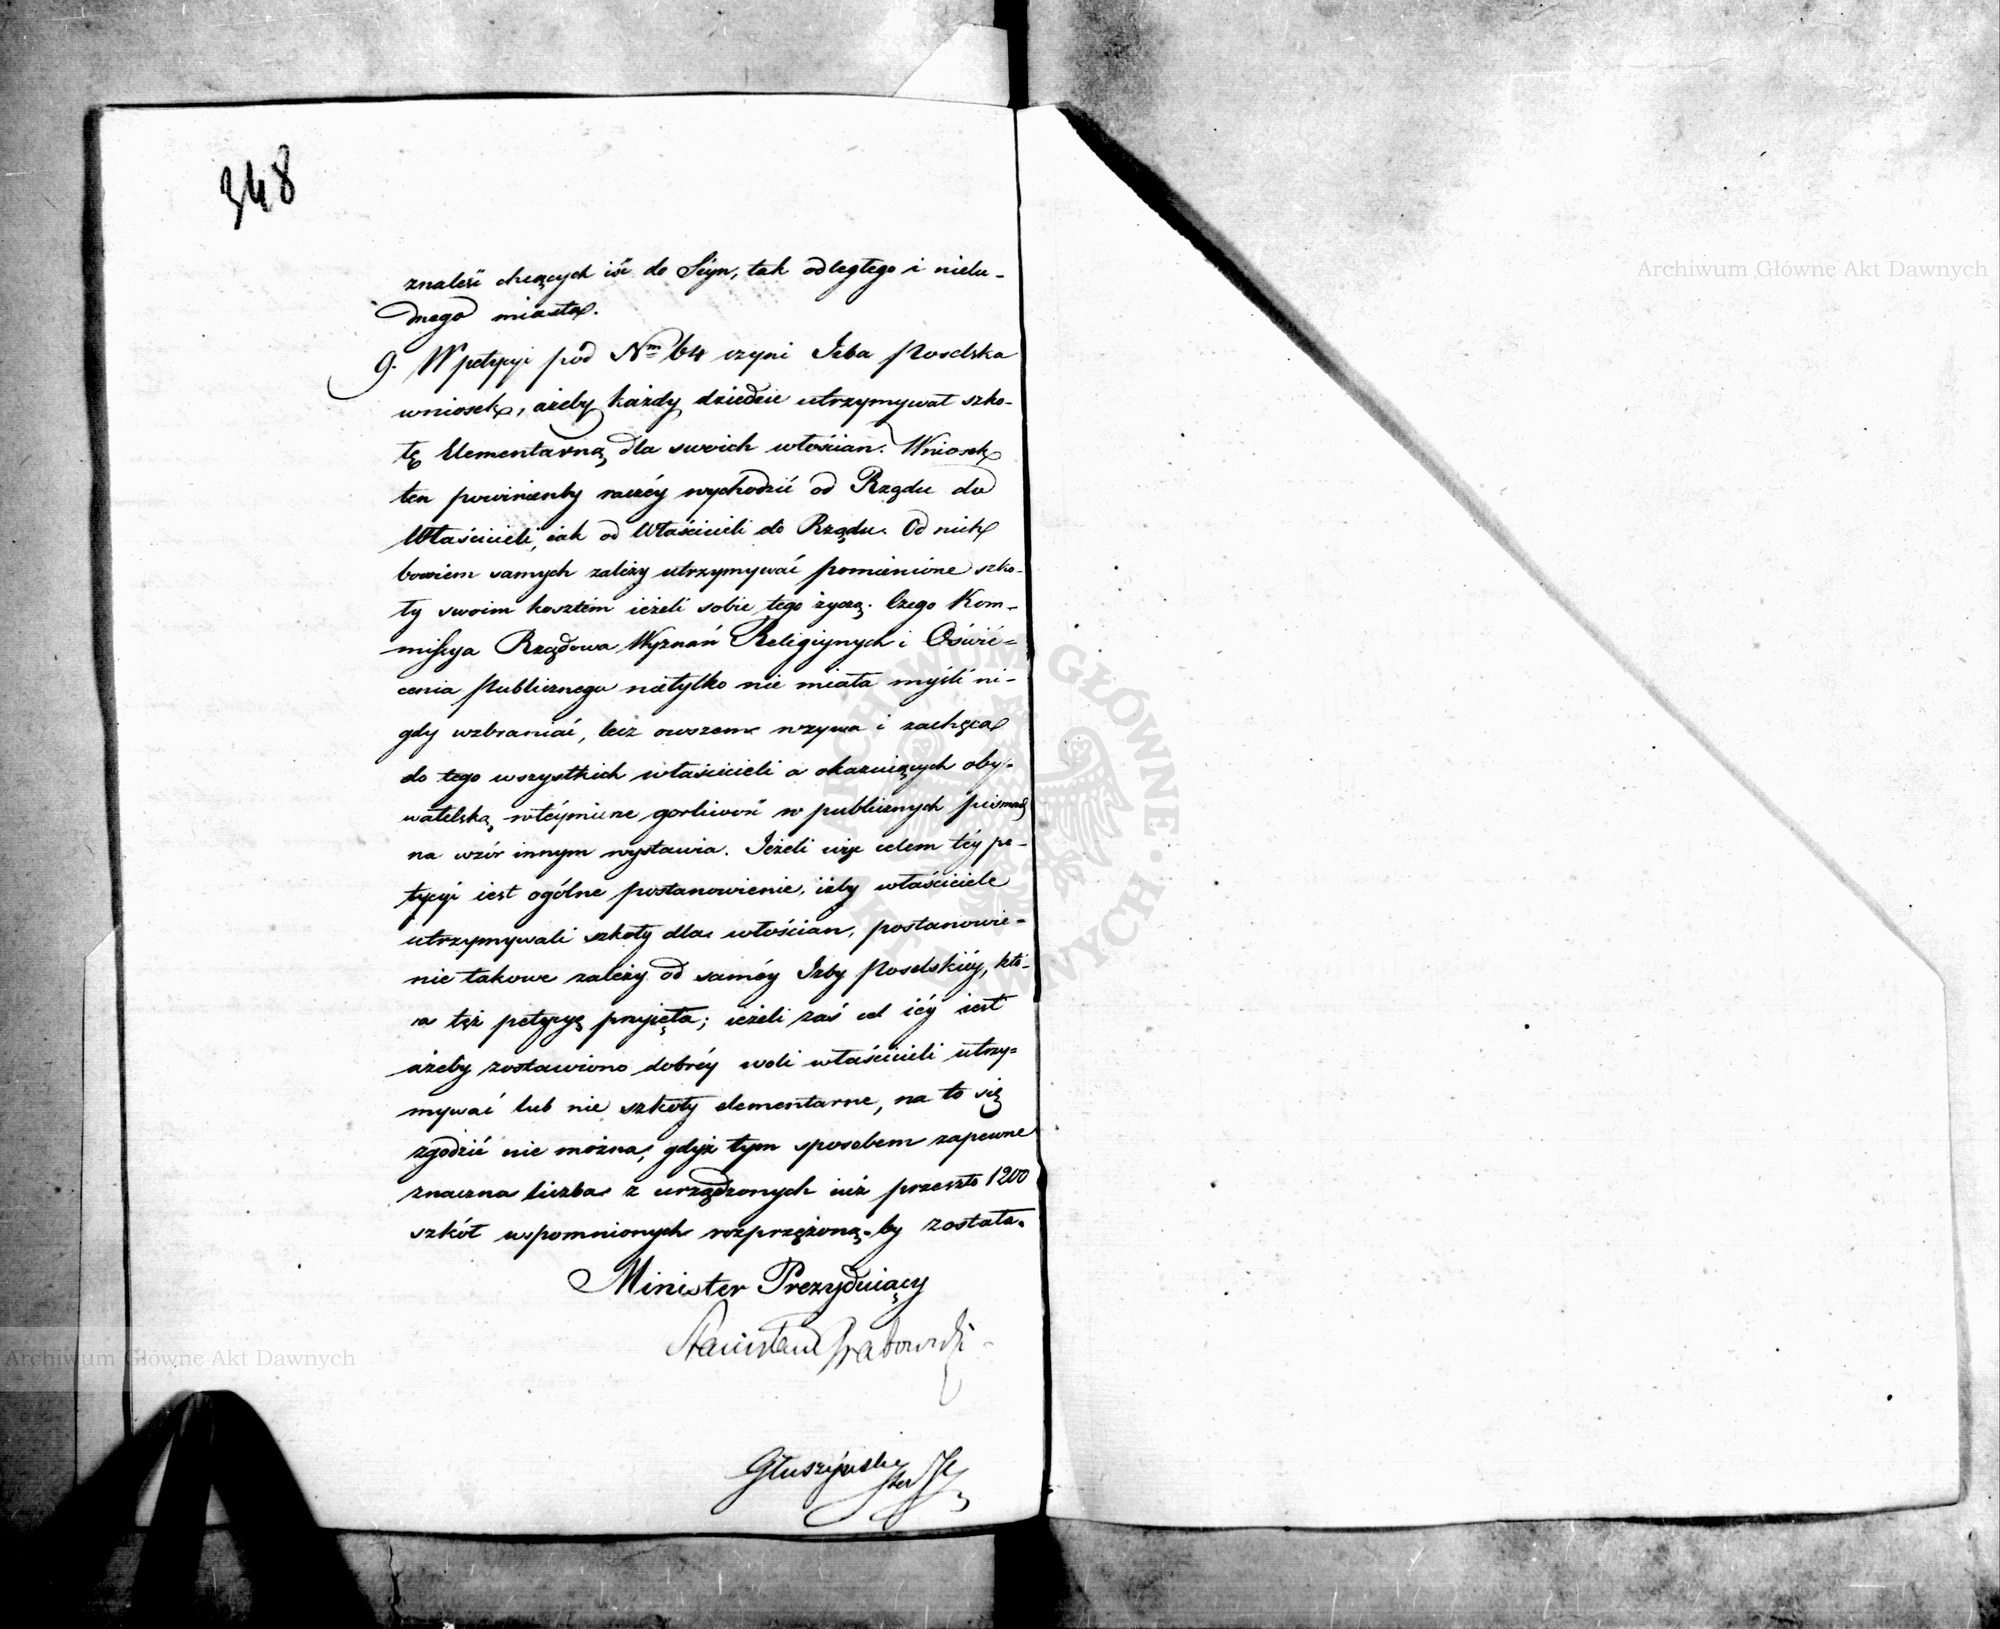 348
znaleść chcących iść do Seyn, tak odległego i nielu-
dnego miasta.
9. W petycyi pod Nm 64 czyni Izba Poselska
wniosek, ażeby każdy dziedzic utrzymywał szko-
łę Elementarną dla swoich włościan. Wniosek
ten powinienby raczéy wychodzić od Rządu do
Właścicieli, iak od Właścicieli do Rządu. Od nich
bowiem samych zależy utrzymywać pomienione szko-
ły swoim kosztem ieżeli sobie tego życzą. Czego Kom-
missya Rządowa Wyznań Religiynych i Oświé-
cenia Publicznego nietylko nie miała myśli ni-
gdy wzbraniać, lecz owszem wzywa i zachęca
do tego wszystkich właścicieli a okazuiących oby-
watelską wtéymierze gorliwość w publicznych pismach
na wzór innym wystawia. Jeżeli więc celem téy pe-
tycyi iest ogólne postanowienie, iżby właściciele
utrzymywali szkoły dla włościan, postanowie-
nie takowe zależy od saméy Izby Poselskiéy, któ-
ra też petycyę przyięła; ieżeli zaś cel iéy iest
ażeby zostawiono dobréy woli właścicieli utrzy-
mywać lub nie szkoły elementarne, na to się
zgodzić nie można, gdyż tym sposobem zapewne
znaczna liczba z urządzonych iuż przeszło 1200
szkół wspomnionych rozprzężoną-by została.
Minister Prezyduiący
Stanisław Grabowski
Głuszyński
Archiwum Główne Akt Dawnych
Archiwum Główne Akt Dawnych
ARCHIWUM GŁÓWNE AKT DAWNYCH